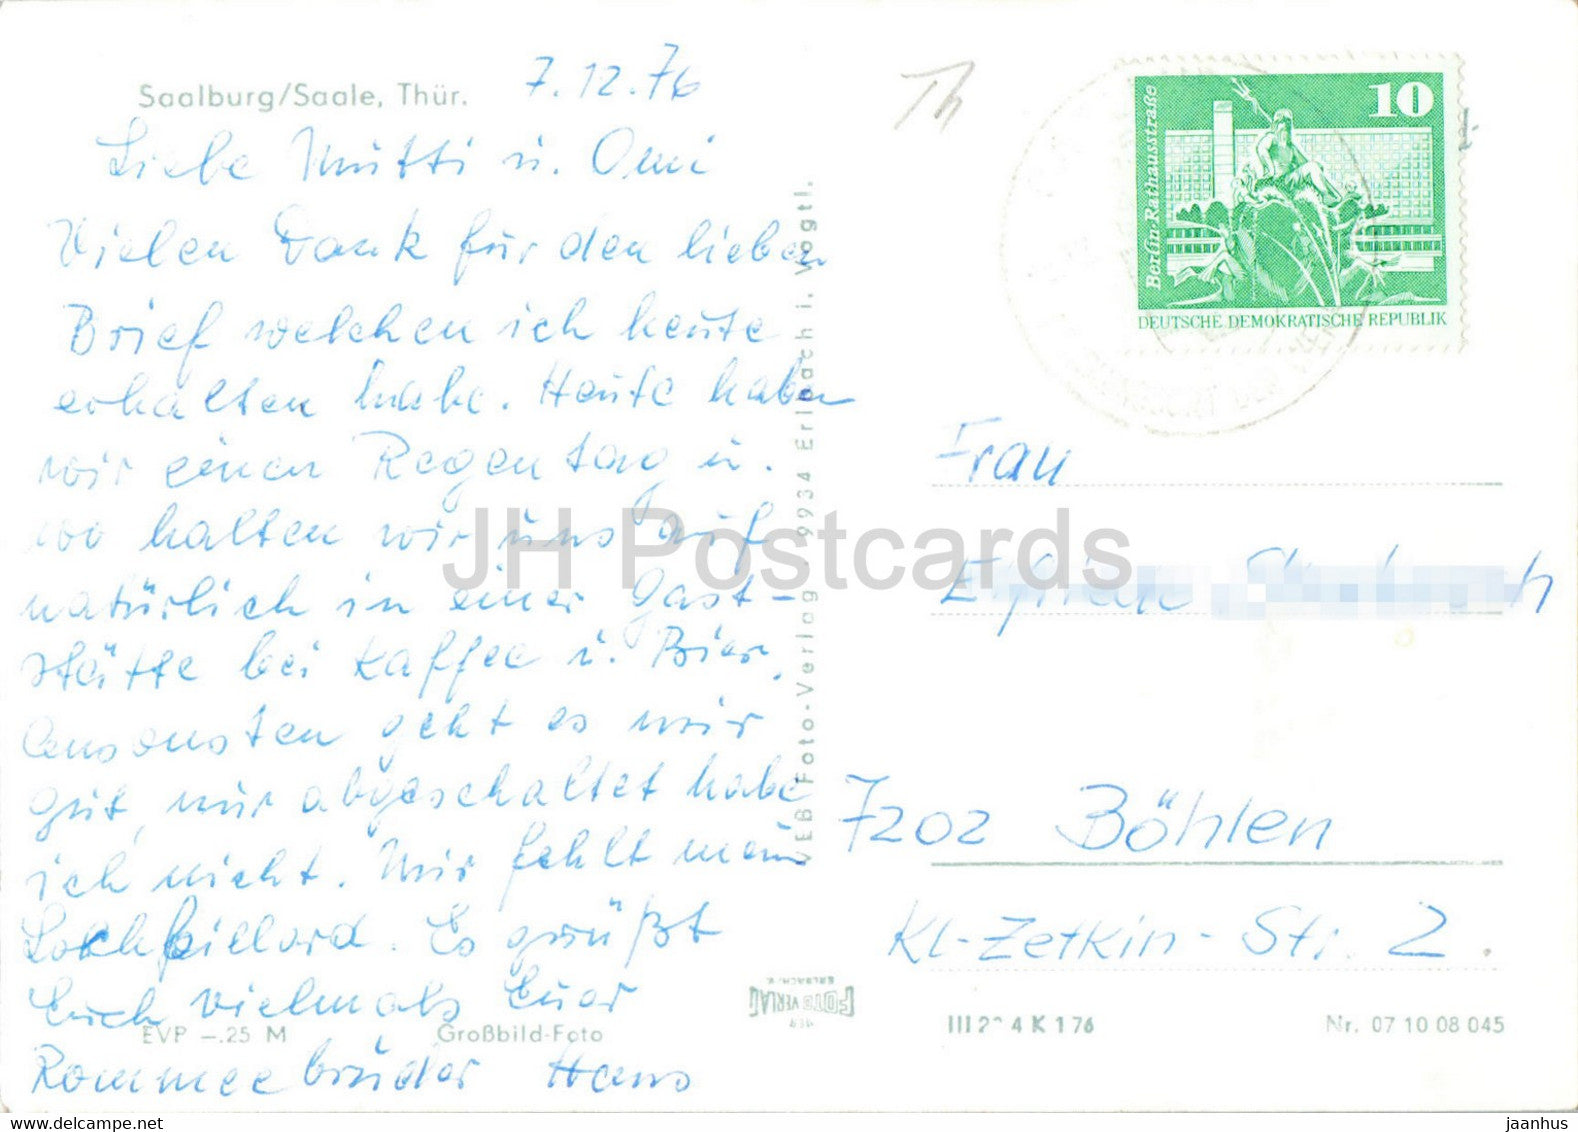 Saalburg/Saale, Thür.
7.12.76
Liebe Mutti u. Omi
Vielen Dank für den lieben
Brief welchen ich heute
erhalten habe. Heute haben
wir einen Regentag u.
wo halten wir uns auf
natürlich in einer Gast-
stätte bei Kaffee u. Bier.
Ansonsten geht es mir
gut, nur abgeschaltet habe
ich nicht. Mir fehlt mein
Lochbillard. Es grüßt
Euch vielmals Euer
Rommeebrüder Hans
EVP -.25 M
Großbild-Foto
VEB Foto-Verlag . 9934 Erlbach i. Vogtl.
FOTO VERLAG
ERLBACH/V.
Th
10
Berlin-Rathausstraße
DEUTSCHE DEMOKRATISCHE REPUBLIK
Frau
7202 Böhlen
Kl-Zetkin-Str. 2.
III 2 4 K 1 76
Nr. 07 10 08 045
JH Postcards
jaanhus
www.delcampe.net